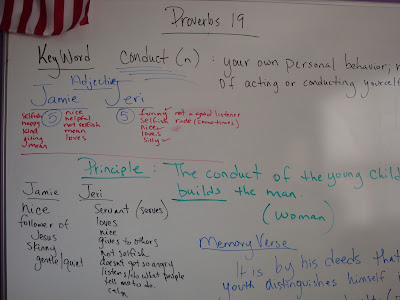 Proverbs 19
Key Word Conduct (n) : your own personal behavior;
of acting or conducting yourself
Adjective
Jamie Jeri
selfish
happy
kind
giving
mean
5
nice
helpful
not selfish
mean
loves
5
funny
selfish
nice
loves
silly
not a good listener
rude (sometimes)
Principle : The conduct of the young child
builds the man.
(woman)
Jamie
nice
follower of
Jesus
skinny
gentle/quiet
Jeri
Servant (serves)
loves
nice
gives to others
not selfish
doesn't get so angry
listens/do what people
tell me to do.
calm
Memory Verse
It is by his deeds that
youth distinguishes himself